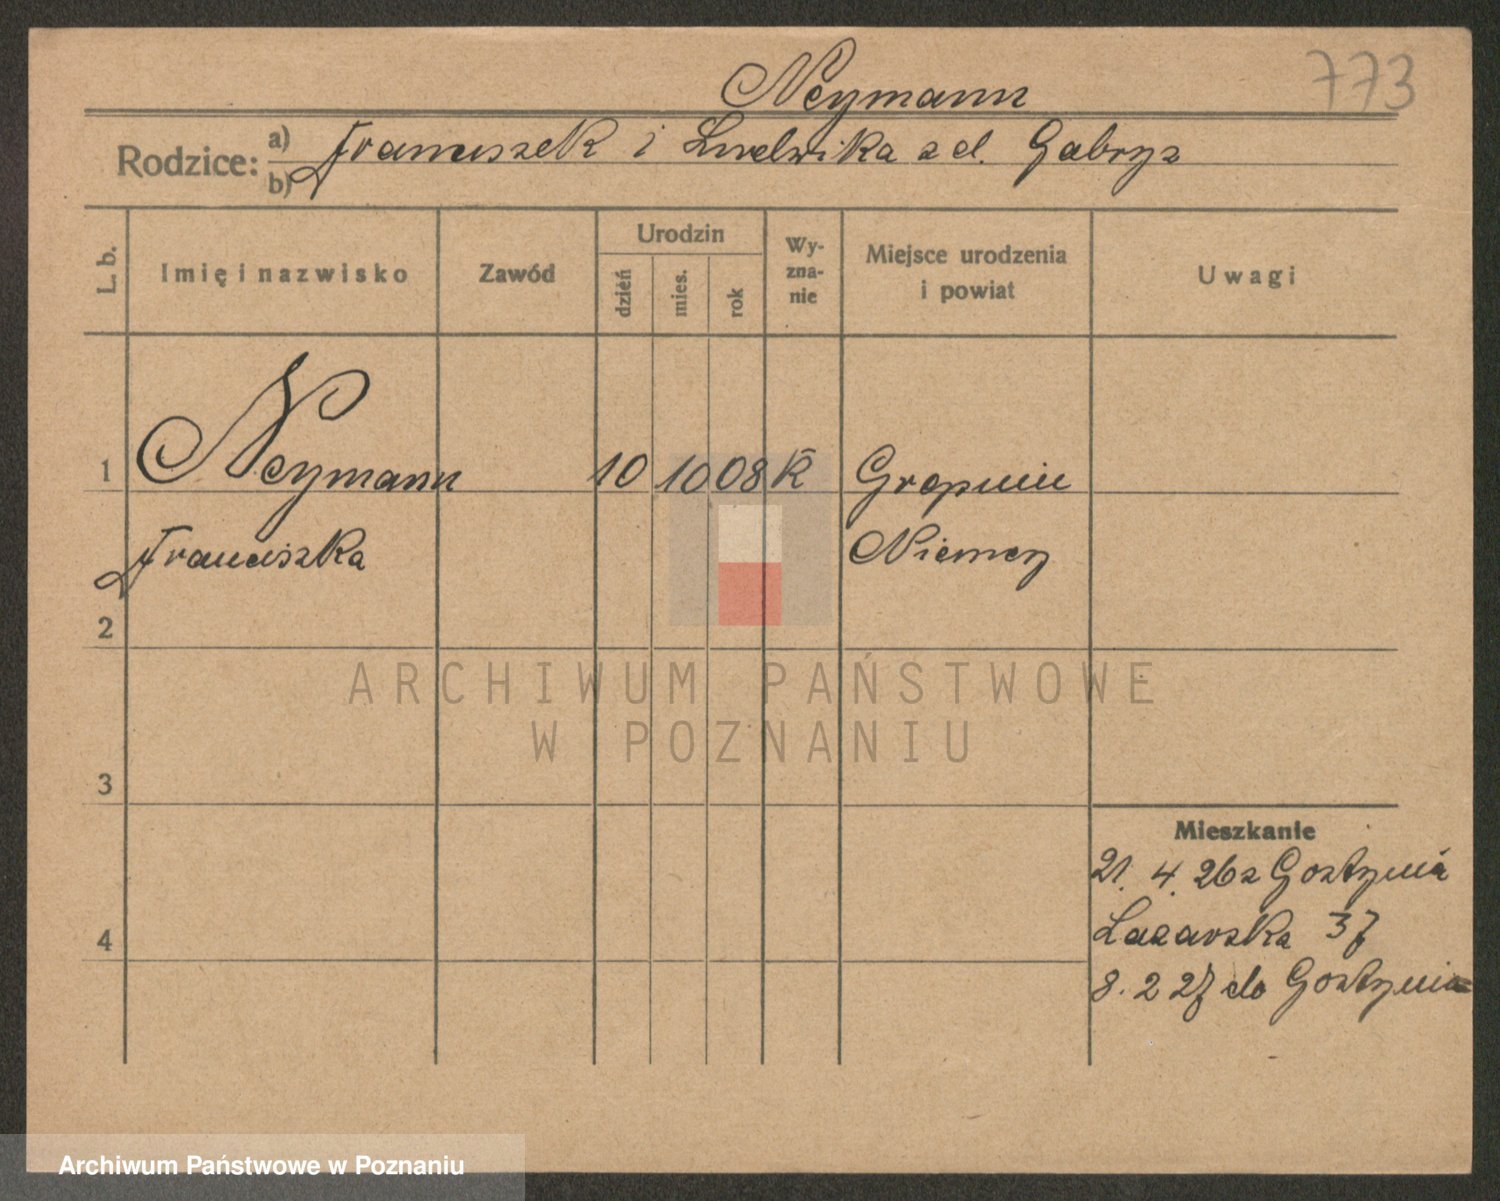 Neymann
773
Rodzice: a) Franciszek i Ludwika z d. Gabrys
b)
L. b. Imię i nazwisko Zawód Urodzin dzień mies. rok Wyznanie Miejsce urodzenia i powiat Uwagi
1 Neymann 10 10 08 K
Franciszka Niemcy
2
3
4
ARCHIWUM PAŃSTWOWE
W POZNANIU
Mieszkanie
21. 4. 26 z Gostynia
Lazarska 37
8. 2 27 do Gostynia
Archiwum Państwowe w Poznaniu